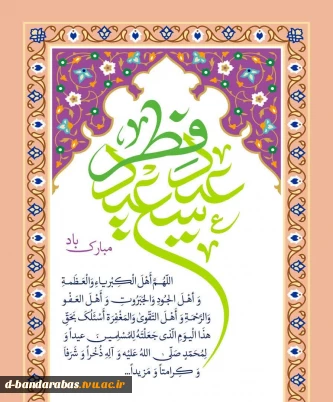 عید سعید فطر
مبارک باد
اللّهُمَّ أَهْلَ الْکِبْرِیاءِ وَالْعَظَمَةِ
وَ أَهْلَ الْجُودِ وَالْجَبَرُوتِ وَ أَهْلَ الْعَفْوِ
وَالرَّحْمَةِ وَ أَهْلَ التَّقْویٰ وَالْمَغْفِرَةِ أَسْئَلُکَ بِحَقِّ
هذَا الْیَومِ الَّذی جَعَلْتَهُ لِلْمُسْلِمینَ عیداً وَ
لِمُحَمَّدٍ صَلَّی اللهُ عَلَیْهِ وَ آلِهِ ذُخْراً وَ شَرَفاً
وَ کِرامَتاً وَ مَزیداً...
d-bandarabas.tvu.ac.ir